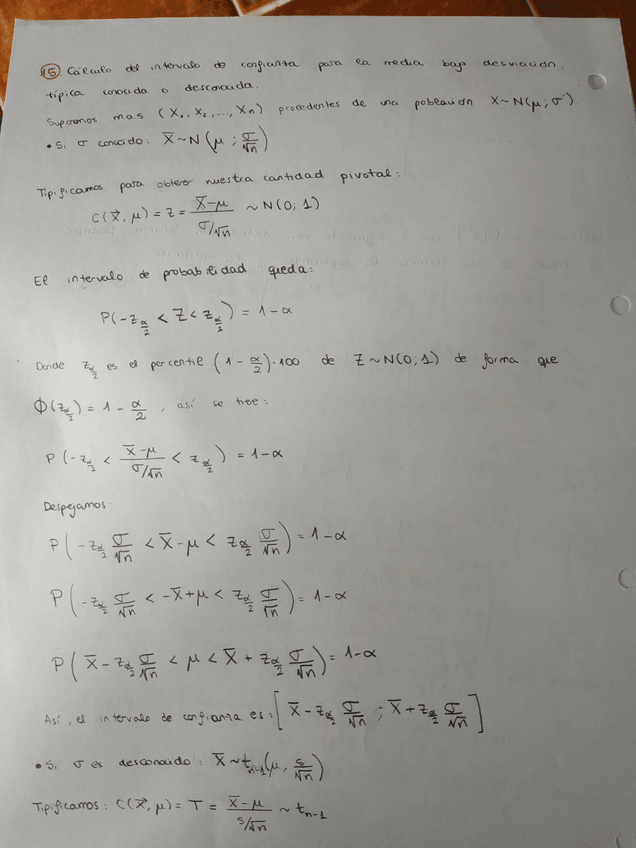 15. Cálculo del intervalo de confianza para la media bajo desviación
típica conocida o desconocida.
Suponemos mas (X₁, X₂, ..., Xₙ) procedentes de una población X~N(μ; σ).
• Si σ conocido: X̄~N(μ; σ/√n)
Tipificamos para obtener nuestra cantidad pivotal:
C(X⃗, μ) = Z = (X̄-μ)/(σ/√n) ~ N(0; 1)
El intervalo de probabilidad queda:
P(-z_{α/2} < Z < z_{α/2}) = 1-α
Donde z_{α/2} es el percentil (1 - α/2)·100 de Z~N(0;1) de forma que
Φ(z_{α/2}) = 1 - α/2, así se tiene:
P(-z_{α/2} < (X̄-μ)/(σ/√n) < z_{α/2}) = 1-α
Despejamos:
P(-z_{α/2} σ/√n < X̄-μ < z_{α/2} σ/√n) = 1-α
P(-z_{α/2} σ/√n < -X̄+μ < z_{α/2} σ/√n) = 1-α
P(X̄-z_{α/2} σ/√n < μ < X̄+z_{α/2} σ/√n) = 1-α
Así, el intervalo de confianza es: [X̄-z_{α/2} σ/√n ; X̄+z_{α/2} σ/√n]
• Si σ es desconocido: X̄~t_{n-1}(μ, s/√n)
Tipificamos: C(X⃗, μ) = T = (X̄-μ)/(s/√n) ~ t_{n-1}